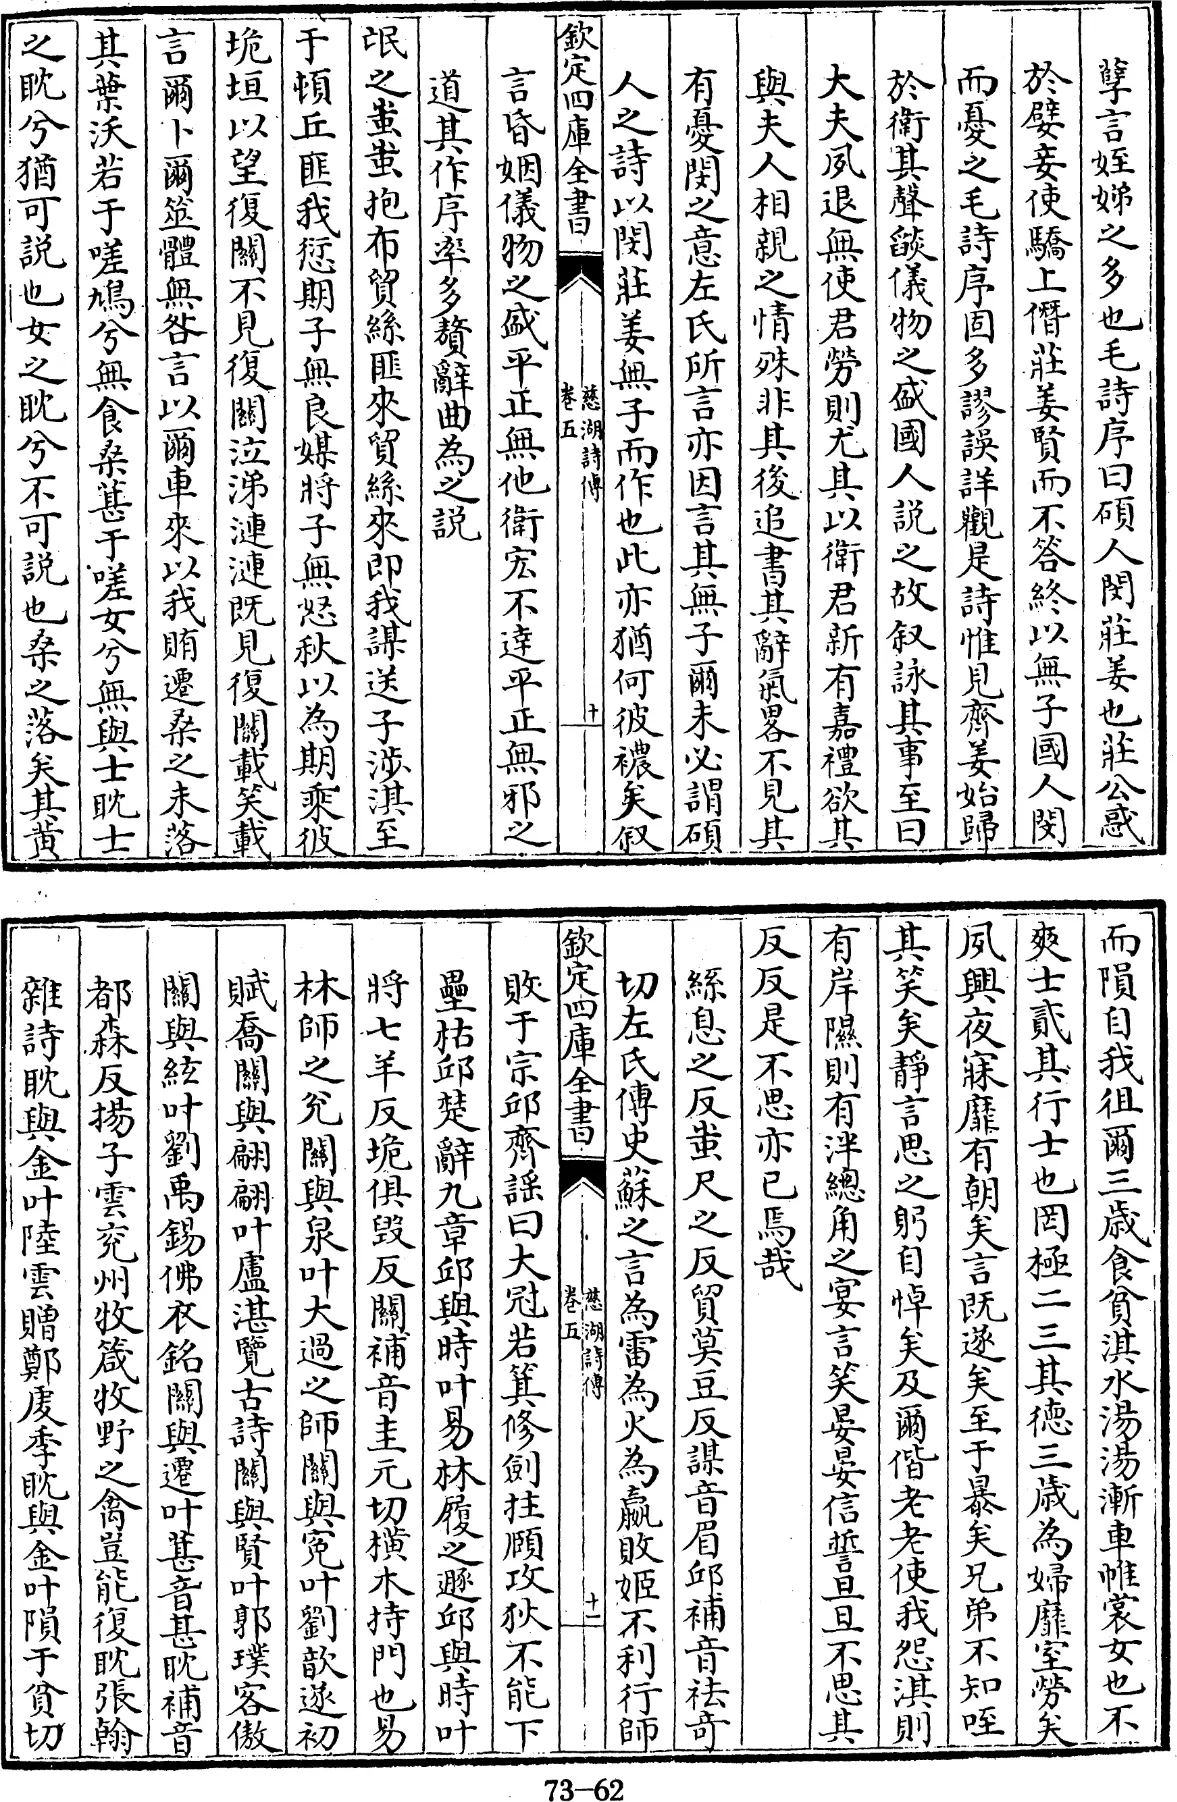 孽言姪娣之多也毛詩序曰碩人閔莊姜也莊公惑
於嬖妾使驕上僭莊姜賢而不答終以無子國人閔
而憂之毛詩序固多謬誤詳觀是詩惟見齊姜始歸
於衛其聲燄儀物之盛國人説之故叙詠其事至曰
大夫夙退無使君勞則尤其以衛君新有嘉禮欲其
與夫人相親之情殊非其後追書其辭氣畧不見其
有憂閔之意左氏所言亦因言其無子爾未必謂碩
人之詩以閔莊姜無子而作也此亦猶何彼襛矣叙
欽定四庫全書
慈湖詩傳
卷五
十
言昏姻儀物之盛平正無他衛宏不達平正無邪之
道其作序率多贅辭曲為之説
氓之蚩蚩抱布貿絲匪來貿絲來即我謀送子涉淇至
于頓丘匪我愆期子無良媒將子無怒秋以為期乘彼
垝垣以望復關不見復關泣涕漣漣既見復關載笑載
言爾卜爾筮體無咎言以爾車來以我賄遷桑之未落
其葉沃若于嗟鳩兮無食桑葚于嗟女兮無與士耽士
之耽兮猶可説也女之耽兮不可説也桑之落矣其黄
而隕自我徂爾三歲食貧淇水湯湯漸車帷裳女也不
爽士貳其行士也罔極二三其德三歲為婦靡室勞矣
夙興夜寐靡有朝矣言既遂矣至于暴矣兄弟不知咥
其笑矣靜言思之躬自悼矣及爾偕老老使我怨淇則
有岸隰則有泮總角之宴言笑晏晏信誓旦旦不思其
反反是不思亦已焉哉
絲息之反蚩尺之反貿莫豆反謀音眉邱補音祛奇
切左氏傳史蘇之言為雷為火為嬴敗姬不利行師
欽定四庫全書
慈湖詩傳
卷五
十一
敗于宗邱齊謡曰大冠若箕修劍拄頤攻狄不能下
壘枯邱楚辭九章邱與時叶易林履之遯邱與時叶
將七羊反垝俱毀反關補音圭元切横木持門也易
林師之兊關與泉叶大過之師關與寃叶劉歆遂初
賦喬關與翩翩叶盧湛覽古詩關與賢叶郭璞客傲
關與絃叶劉禹錫佛衣銘關與遷叶葚音甚耽補音
都森反揚子雲兖州牧箴牧野之禽豈能復耽張翰
雜詩耽與金叶陸雲贈鄭虔季耽與金叶隕于貧切
73-62